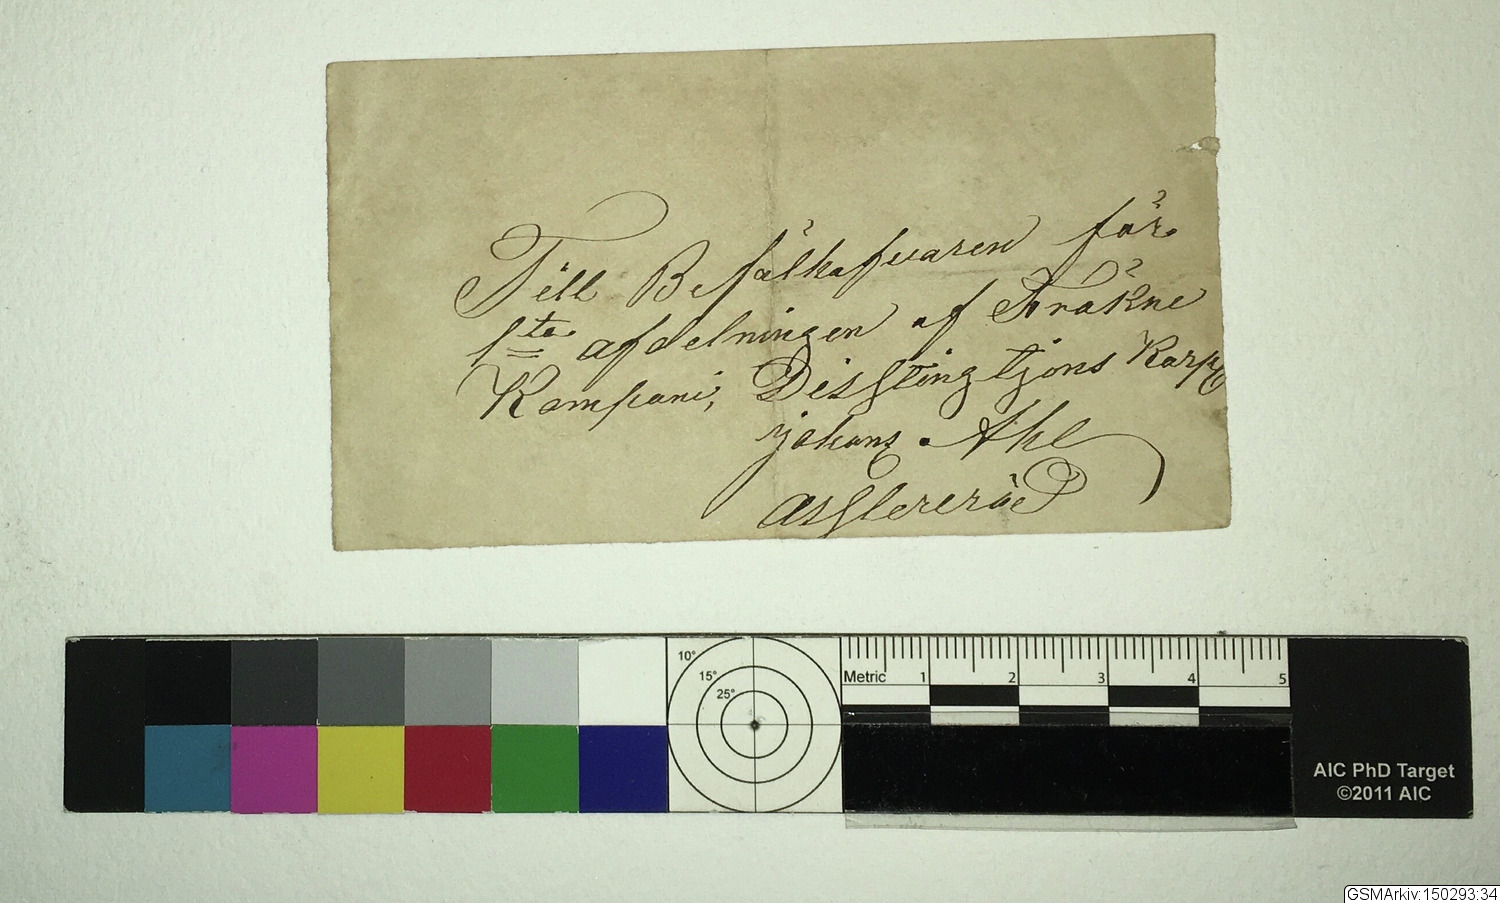 Till Befälhafvaren för
1sta afdelningen af Bräkne
Kompani, Disstingtjons Karp
johans Ahl
asslereräd
10°
15°
25°
Metric 1 2 3 4 5
AIC PhD Target
©2011 AIC
GSMArkiv:150293:34